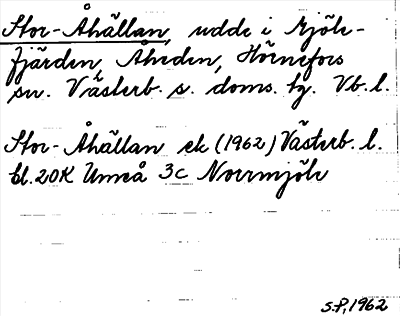 Stor-Åhällan, udde i Mjöle-
fjärden, Åheden, Hörnefors
sn. Västerb. s. doms. tg. Vb. l.
Stor-Åhällan ek (1962) Västerb. l.
bl. 20K Umeå 3c Norrmjöle
S.P, 1962